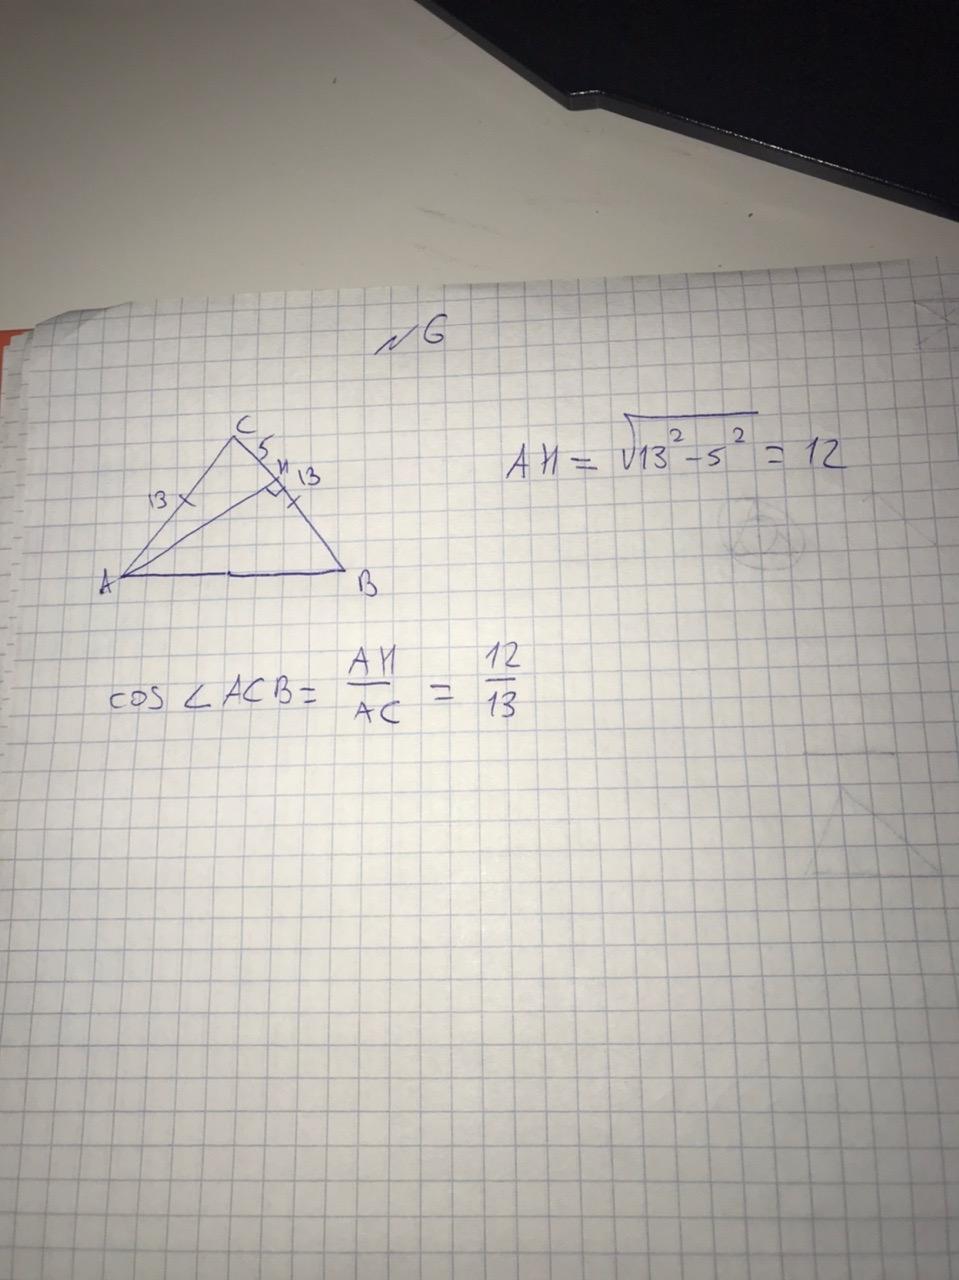 №6
C
5
H
13
13
A
B
AH = √13² - 5² = 12
cos ∠ACB = AH/AC = 12/13